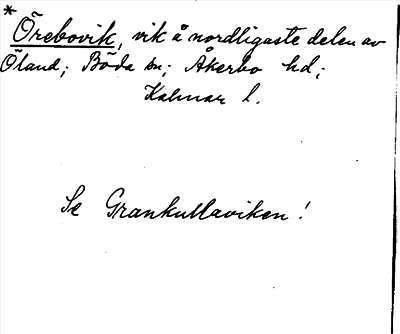 * Örebovik, vik å nordligaste delen av
Öland; Böda sn; Åkerbo hd;
Kalmar l.
Se Grankullaviken!